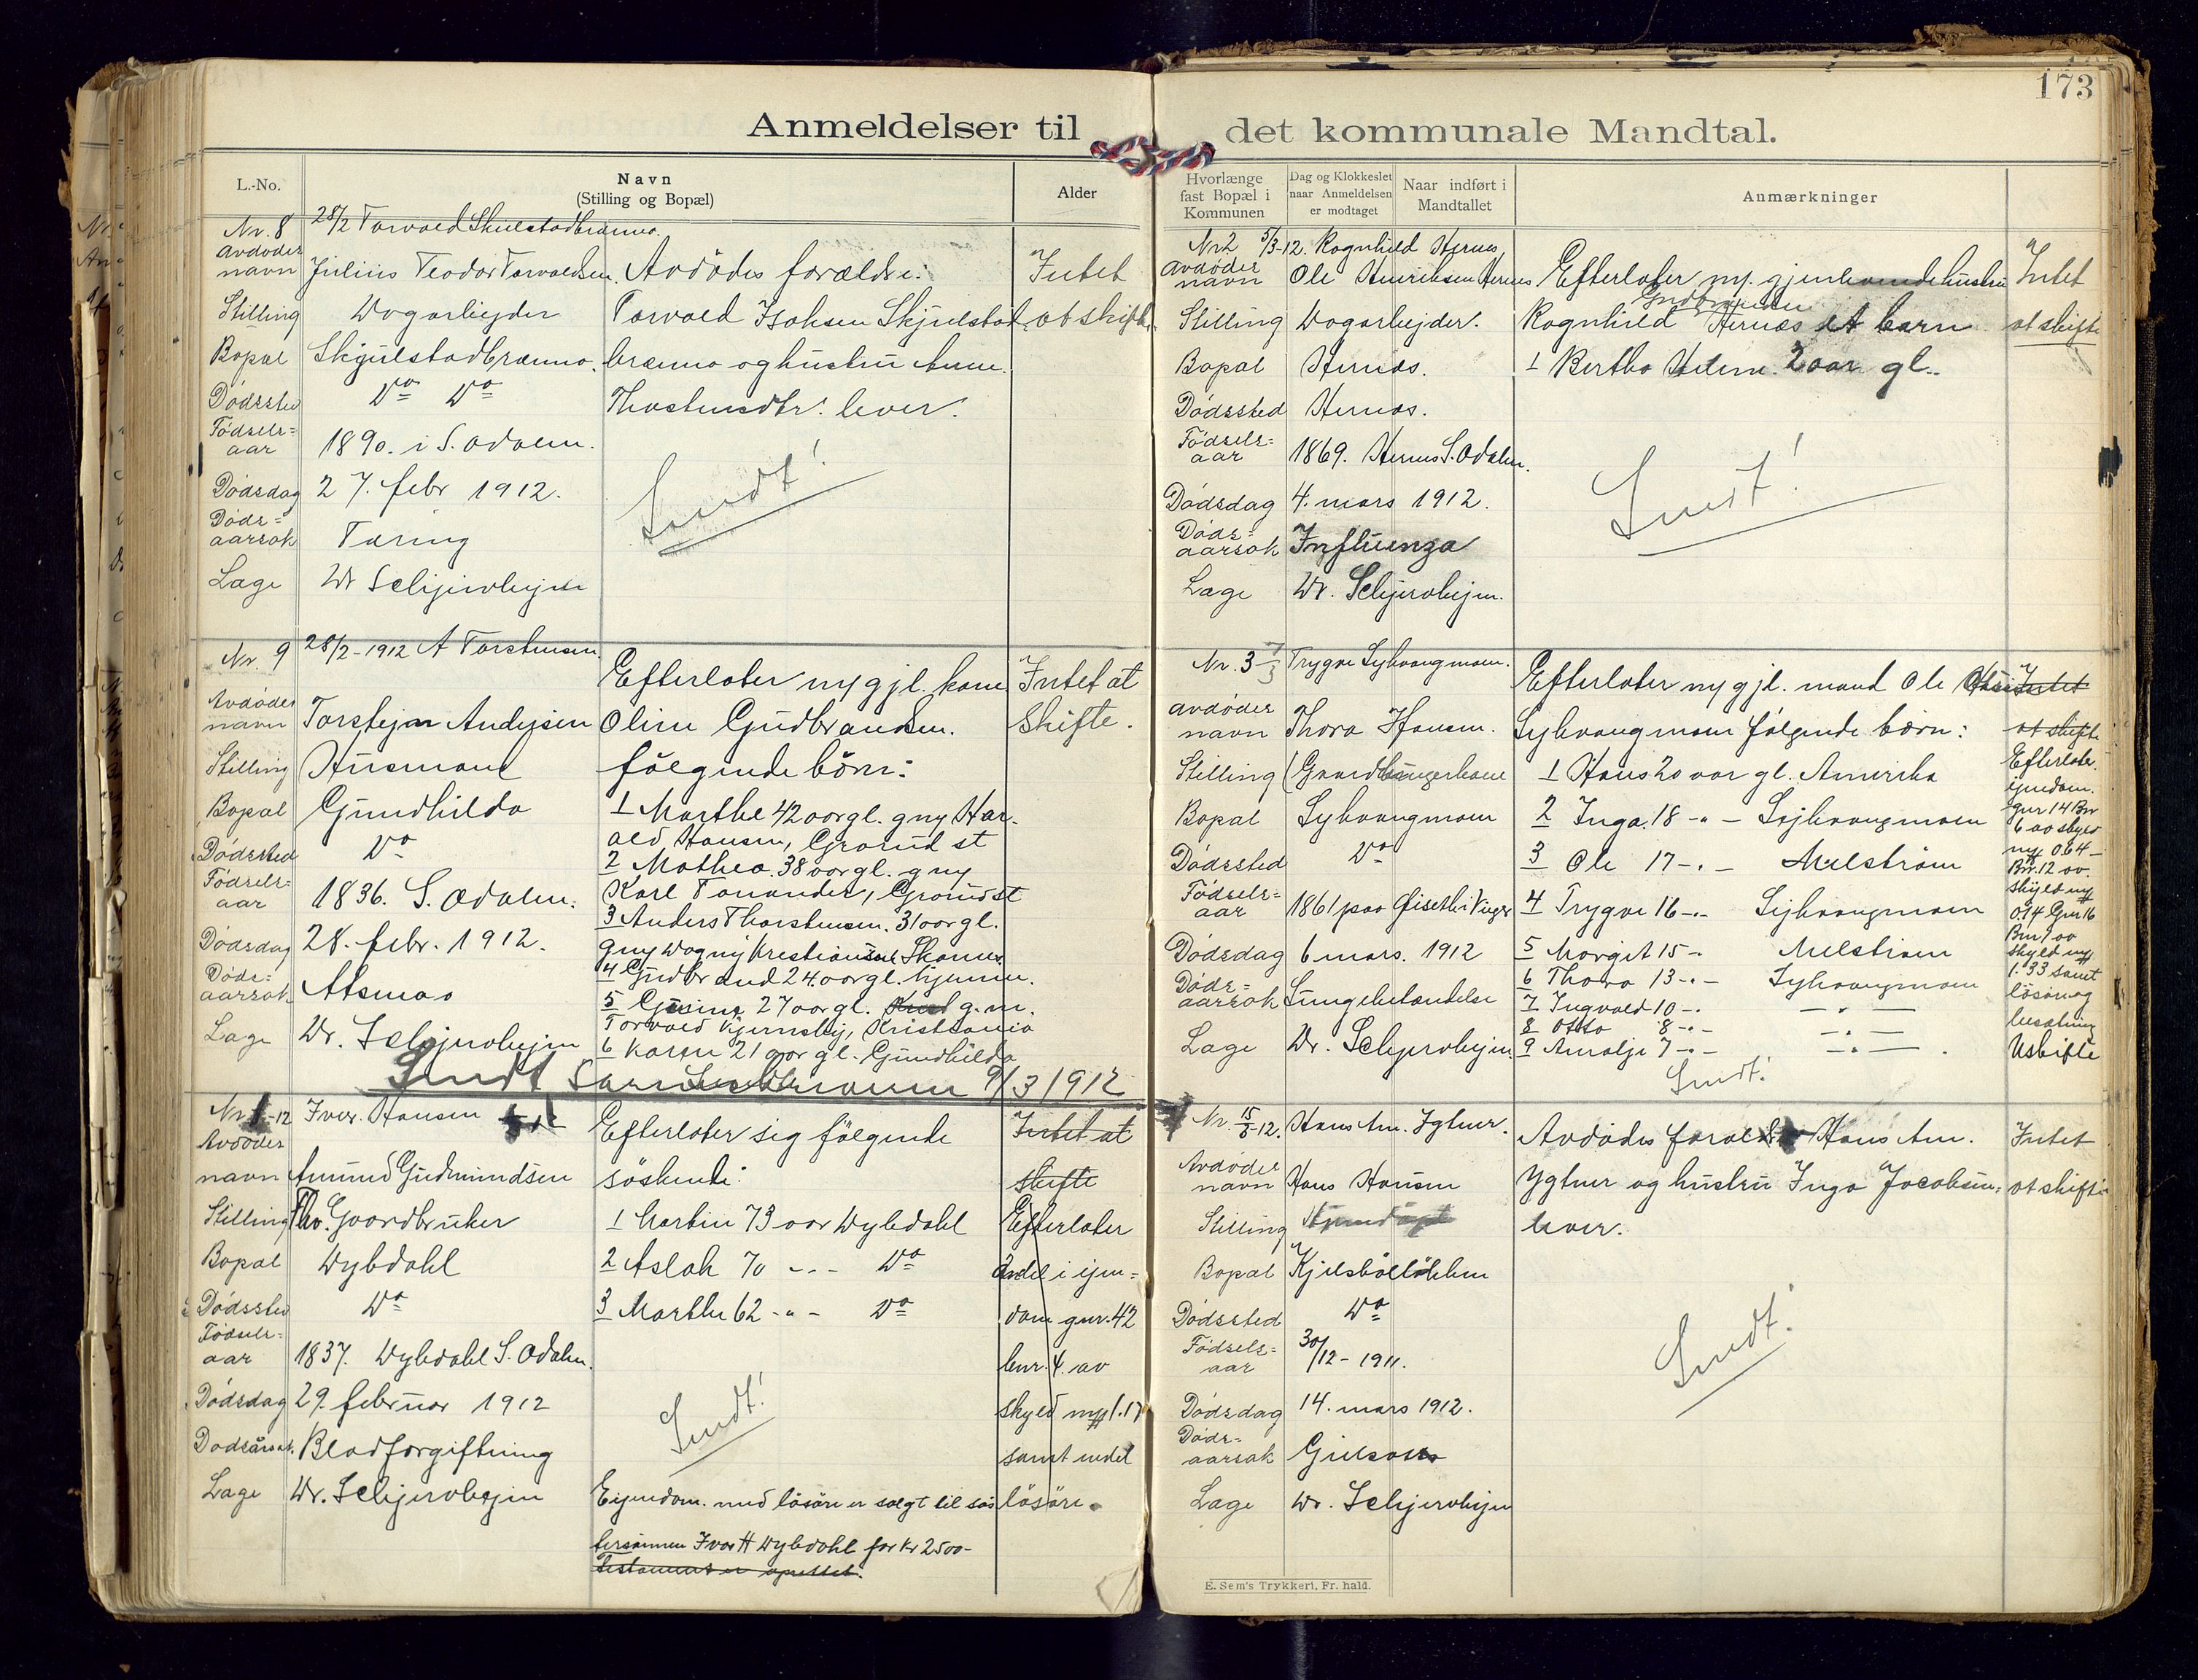 173
Anmeldelser til det kommunale Mandtal.
L.-No.
Navn
(Stilling og Bopæl)
Alder
Hvorlænge
fast Bopæl i
Kommunen
Dag og Klokkeslet
naar Anmeldelsen
er modtaget
Naar indført i
Mandtallet
Anmærkninger
Nr. 8 28/2 Torvald Skulstadbranna.
Avdødes
navn Julius Teodor Torvaldsen.
Stilling Dagarbejder
Bopæl Skjulstadbranna.
Dødssted Do Do
Fødsels=
aar 1890. i S. Odalen.
Dødsdag 27. febr 1912.
Døds=
aarsak Tæring
Læge Dr Schjervhejm
Avdødes forældre:
Torvald Isaksen Skjulstad
branna og hustru Anne
Thostensdtr. lever.
Sendt!
Intet
at skifte
Nr. 9 28/2-1912 A Torstensen.
Avdødes
navn Torstejn Andersen
Stilling Husmand
Bopæl Gundhilda
Dødssted Do
Fødsels=
aar 1836. S. Odalen.
Dødsdag 28. febr. 1912.
Døds=
aarsak Atsmas
Læge Dr. Schjervhejm
Efterlater nygjl. kone
Oline Gudbrandsen.
følgende børn:
1 Marthe 42 aar gl. g m/ Har-
ald Hansen, Grønd st
2 Mathea. 38 aar gl. g m/
Karl Tanander, Grøndst
3 Anders Thorstensen. 31 aar gl.
g m/ Dagny Krestiansen Skarnes
4 Gudbrand 24. aar gl. hjemme.
5 Gusina 27 aar gl. g. m.
Torvald Kjernsby, Kristiania
6 Karen 21 aar gl. Gundhilda
Intet at
Skifte.
Sendt 9/3 1912
Nr. 1-12 Iver Hansen
Avdødes
navn Amund Gudmundsen
Stilling Fhv. Gaardbruker
Bopæl Dybdahl
Dødssted Do
Fødsels=
aar 1837. Dybdahl S. Odalen.
Dødsdag 29. februar 1912
Dødsårsak Blodforgiftning
Læge Dr. Schjervhejm
Efterlater sig følgende
søskende:
1 Martin 73 aar Dybdahl
2 Aslak 70 -"- Do
3 Marthe 62 -"- Do
Sendt!
Ejendom. med løsøre er solgt til søs
tersønnen Ivar H Dybdahl for kr 2500-
Testament er oprettet.
Intet at
skifte
Efterlater
andel i ejen=
dom gnr. 42
bnr. 4. av
skyld my 1.17
samt endel
løsøre.
Nr 2 5/3-12. Ragnhild Hernes
Avdødes
navn Ole Henriksen Hernes
Stilling Dagarbejder.
Bopæl Hernæs.
Dødssted Hernæs.
Fødsels=
aar 1869. Hernes S. Odalen.
Dødsdag 4. mars 1912.
Døds=
aarsak Influenza
Læge Dr. Schjervhejm.
Efterlater ny. gjenlevende hustru
Gudbrandsen
Ragnhild Hernæs et barn
1 Bertha Helene. 2 aar gl.
Sendt!
Intet
at skifte
Nr. 3 7/3 Trygve Syhaangmoen.
Avdødes
navn Thora Hansen.
Stilling (Gaardbrugerkone
Bopæl Syhaangmoen
Dødssted Do
Fødsels=
aar 1861 paa Øiseth i Vinger
Dødsdag 6 mars. 1912
Døds=
aarsak Lungebetændelse
Læge Dr. Schjervhejm
Efterlater nygjl. mand Ole
Syhaangmoen følgende børn:
1 Hans 20 aar gl. Amerika
2 Inga. 18 -"- Syhaangmoen
3 Ole 17 -"- Melström
4 Trygve 16 -"- Syhaangmoen
5 Margit 15 -"- Melström
6 Thora 13 -"- Syhaangmoen
7 Ingvald 10 -"- -"-
8 Otto 8 -"- -"-
9 Amalje 7 -"- -"-
Sendt!
Intet
at skifte
Efterlater.
ejendom.
gnr 14 Bnr
6 av skyld
my 0.64 -
Bnr. 12 av.
skyld my
0.14 Gnr 16
Bnr 1 av
skyld my
1.33 samt
løsøre og
besætning
Uskifte
Nr. 15/3-12. Hans An. Igtner.
Avdødes
navn Hans Hansen
Stilling
Bopæl Kjelsbølløkken
Dødssted Do
Fødsels=
aar 30/12-1911.
Dødsdag 14. mars 1912.
Døds=
aarsak Gulsott
Læge Dr. Schjervhejm
Avdødes forældre Hans An.
Ygtner og hustru Inga Jacobsen.
lever.
Sendt!
Intet
at skifte
E. Sem's Trykkeri, Fr. hald.